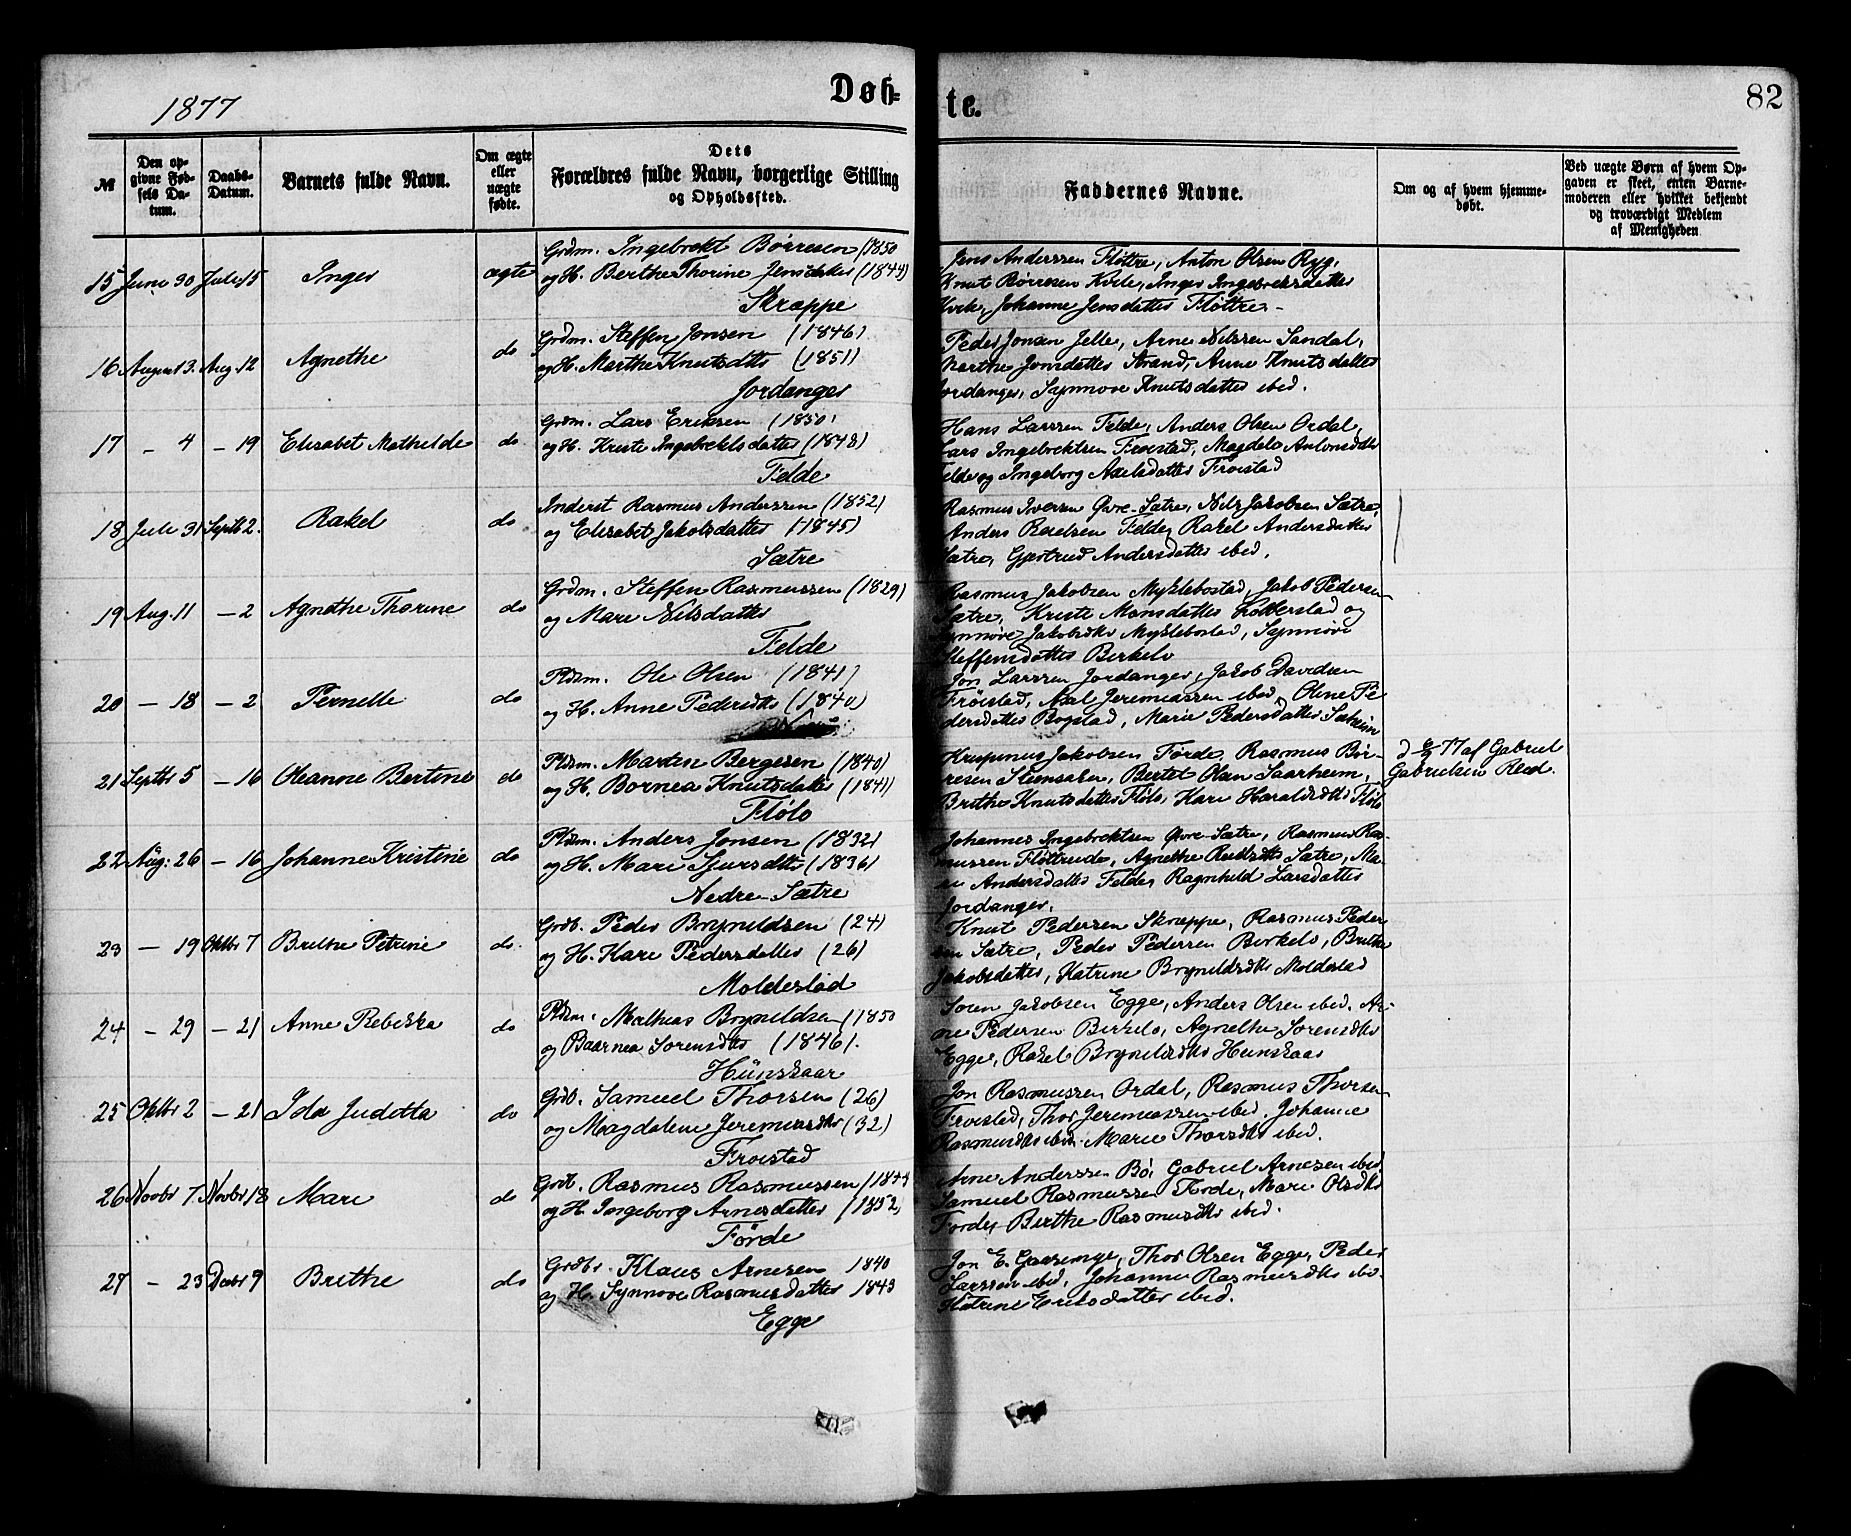 1877
Døb-
te.
82
№
Den op-
givne Fød-
sels Da-
tum.
Daabs-
Datum.
Barnets fulde Navn.
Om ægte
eller
uægte
fødte.
Dets
Forældres fulde Navn, borgerlige Stilling
og Opholdssted.
Faddernes Navne.
Om og af hvem hjemme-
døbt.
Ved uægte Børn af hvem Op-
gaven er skeet, enten Barne-
moderen eller hvilket bekjendt
og troværdigt Medlem
af Menigheden.
15 Juni 30 Juli 15 Inger ægte
Grdm. Ingebrekt Børresen (1850
og H. Berthe Thorine Jensdatter (1844)
Skrappe
Jens Anderssen Fløttre, Anton Olsen Ryg,
Knut Børresen Kvile, Inger Ingebrektsdatter
Kvile, Johanne Jensdatter Fløttre-
16 August 3. Aug 12 Agnethe do
Grdm. Steffen Jonsen (1846)
og H. Marthe Knutsdtts (1851)
Jordanger
Peder Jonsen Jelle, Arne Nilssen Sandal,
Marthe Jonsdatter Strand, Anne Knutsdatter
Jordanger, Synnøve Knutsdatter ibid.
17 - 4 - 19 Elisabet Mathilde do
Grdm. Lars Eriksen (1850)
og H. Kriste Ingebrektsdatter (1848)
Felde
Hans Larssen Felde, Anders Olsen Ordal,
Lars Ingebrektsen Frøistad, Magdela Antonsdtr
Felde og Ingeborg Axelsdatter Frøistad
18 Juli 31 Septb 2. Rakel do
Inderst Rasmus Anderssen (1852)
og Elisabet Jakobsdatter (1845)
Sætre
Rasmus Iversen Øvre-Sætre, Nils Jakobsen Sætre,
Anders Roelsen Felde, Rakel Andersdatter
Sætre, Gjertrud Andersdatter ibid.
19 Aug. 11 - 2 Agnethe Thorine do
Grdm. Steffen Rasmussen (1829)
og Mari Nilsdatter
Felde
Rasmus Jakobsen Myklebostad, Jakob Pedersen
Sætre, Kriste Monsdatter Lotterstad og
Synnøve Jakobsdtr Myklebostad, Synnøve
Steffensdatter Birkelo
20 - 18 - 2 Pernelle do
Pldsm. Ole Olsen (1841)
og H. Anne Pedersdtr (1840)
Jon Larssen Jordanger, Jakob Davidsen
Frøistad, Axel Jeremiassen ibid, Oline Pe
dersdatter Bogstad, Marie Pedersdatter Sæheim
21 Septbr 5 - 16 Oleanne Bertine do
Pldsm. Marten Bergesen (1840)
og H. Bornea Knutsdatter (1841)
Flølo
Krispinus Jakobsen Førde, Rasmus Bør-
resen Steensaker, Bertel Olsen Saarheim,
Brithe Knutsdatter Flølo, Kari Haraldsdtr Flølo
77 af Gabriel
Gabrielsen Reed.
22 Aug: 26 - 16 Johanne Kristine do
Pldsm. Anders Jonsen (1832)
og H. Mari Sjursdtts (1836)
Nedre-Sætre
Johannes Ingebrektsen Øvre-Sætre, Rasmus Ras-
mussen Fløttrude, Agnethe Sætre, Ma-
ri Andersdatter Felde, Ragnhild Larsdatter
Jordanger.
23 - 19 Oktbr 7 Brithe Petrine do.
Grdb. Peder Brynildsen (24)
og H. Kari Pedersdatter (26)
Moldestad
Knut Pedersen Skrappe, Rasmus Peder
sen Sætre, Peder Pedersen Birkelo, Brithe
Jakobsdatter, Katrine Brynildsdtr Moldestad
24 - 29 - 21 Anne Rebekka do
Pldsm. Mathias Brynildsen (1850
og Baarnea Sørensdtr (1846).
Hunskaar
Søren Jakobsen Egge, Anders Olsen ibid. Ar-
ne Pedersen Birkelo, Agnethe Sørensdtr
Egge, Rakel Brynildsdtr Hunskaar
25 Oktbr 2 - 21 Ida Juditta do
Grdb. Samuel Thorsen (26)
og Magdalene Jeremiasdtr (32)
Frøistad
Jon Rasmussen Ordal, Rasmus Thorsen
Frøistad, Thor Jeremiassen ibid. Johanne
Rasmusdtr ibid. Marie Thorsdtr ibid.
26 Novbr 7. Novbr 18 Mari do
Grdb. Rasmus Rasmussen (1844
og H. Ingeborg Arnesdatter (1852)
Førde
Arne Anderssen Bø, Gabriel Arnesen ibid
Samuel Rasmussen Førde, Mari Olsdtr
Førde, Berthe Rasmusdtr ibid.
27 - 23 Decbr 9 Brithe do
Grdbr. Klaus Arnesen 1840
og H. Synnøve Rasmusdatter 1843
Egge
Jon E. Gaasemyr, Thor Olsen Egge, Peder
Larssen ibid, Johanne Rasmusdtr ibid.
Katrine Eriksdatter ibid.